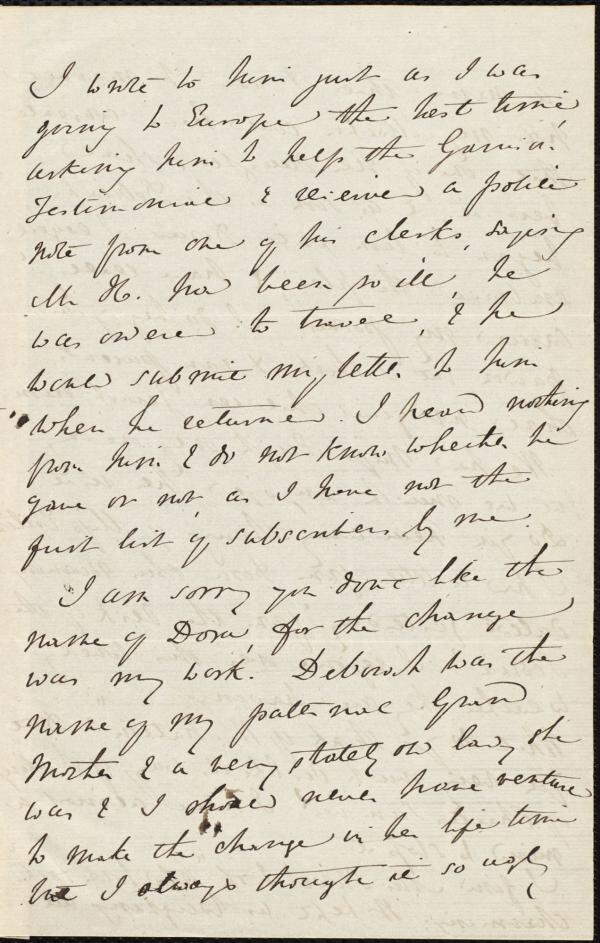 I wrote to him just as I was
going to Europe the last time,
asking him to help the Garrison
Testimonial & received a polite
note from one of his clerks, saying
Mr H. had been so ill, he
was ordered to travel, & he
would submit my letter to him
when he returned. I heard nothing
from him & do not know whether he
gave or not, as I have not the
first list of subscribers by me.
I am sorry you dont like the
name of Dora, for the change
was my work. Deborah was the
name of my paternal Grand
Mother & a very stately old lady she
was & I should never have ventured
to make the change in her life time
but I always thought it so ugly